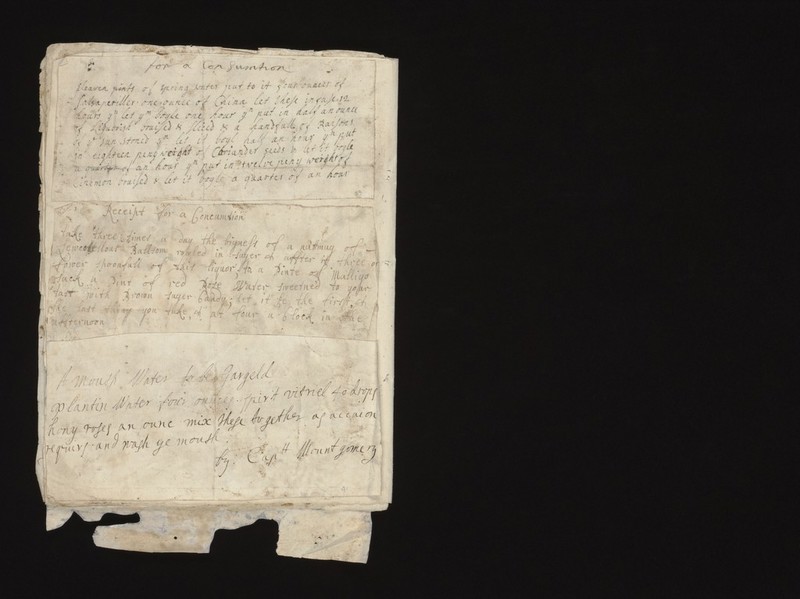 for a Consumtion
Seaven pints of spring water put to it four ounces of
Salsaparilles one ounce of China let these infuse 12
hours yn let ym boyle one hour yn put in half an ounce
of Liquorish bruised & sliced & a handfull of Raisons
of ye sun stoned yn let it boyl half an hour yn put
in eighteen peny weight of Coriander seeds & let it boyle
a quarter of an hour yn put in twelve peny weight of
Cinemon bruised & let it boyle a quarter of an hour
Receipt for a Concumtion
Take three times a day the bigness of a nutmug of
Balsom rouled in suger & after it three or
fower spoonfuls of this liquor, to a Pinte of
Sack a Pint of red Rose Water sweetned to your
tast with Brown suger Candy; let it be the first &
the last thing you take, & at four a Clock in the
afternoon
A mouth Water to be Gargeld
plantin Water four ounces spirt vitriel 40 drops
hony roses an ounc mix these together as occaion
requirs and wash ye mouth
by Captt Mountgomery